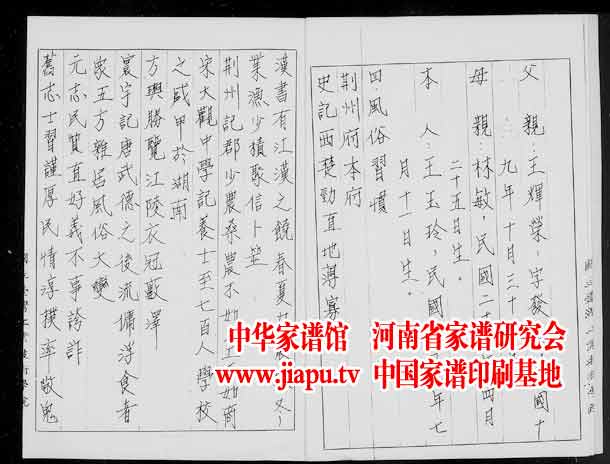 父 親：王輝榮，字發
國十
九年十月三十
母 親：林敏，民國二十
四月
二十五日生。
本 人：王玉玲，民國
年七
月十一日生。
四、風俗習慣
荆州府本府
史記西楚勁直地薄寡
漢書有江漢之饒春夏
冬
業漁少積聚信卜筮
荆州記郡少農桑農不如工工不如商
宋大觀中學記養士至七百人學校
之盛甲於湖南
方輿勝覽江陵衣冠藪澤
寰宇記唐武德之後流傭浮食者
衆五方雜居風俗大變
元志民質直好義不事誇詐
舊志士習謹厚民情淳樸率敬鬼
中华家谱馆 河南省家谱研究会
www.jiapu.tv 中国家谱印刷基地